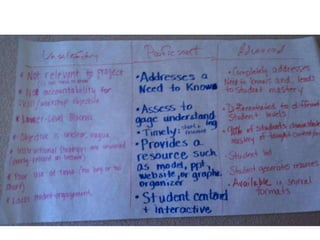 Unsatisfactory
Proficient
Advanced
• Not relevant to project
• Not accountability for
skill/workshop objective
• Lower-Level Blooms
• Objective is unclear, vague
• Instructional
• Poor use of time (too long or too
short)
• Lacks student engagement
• Addresses a
Need to Know
• Assess to
gage understanding
• Timely:
• Provides a
resource such
as model, ppt,
website, or graphic
organizer
• Student centered
+ interactive
• Completely addresses
Need to Knows and leads
to Student mastery
• Differentiated to different
Student levels
of students
mastery of
Student led
Student generates resources
• Available in several
formats